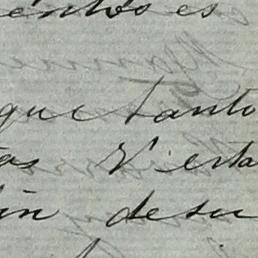 entos es
que tanto
tas y esta
in de su